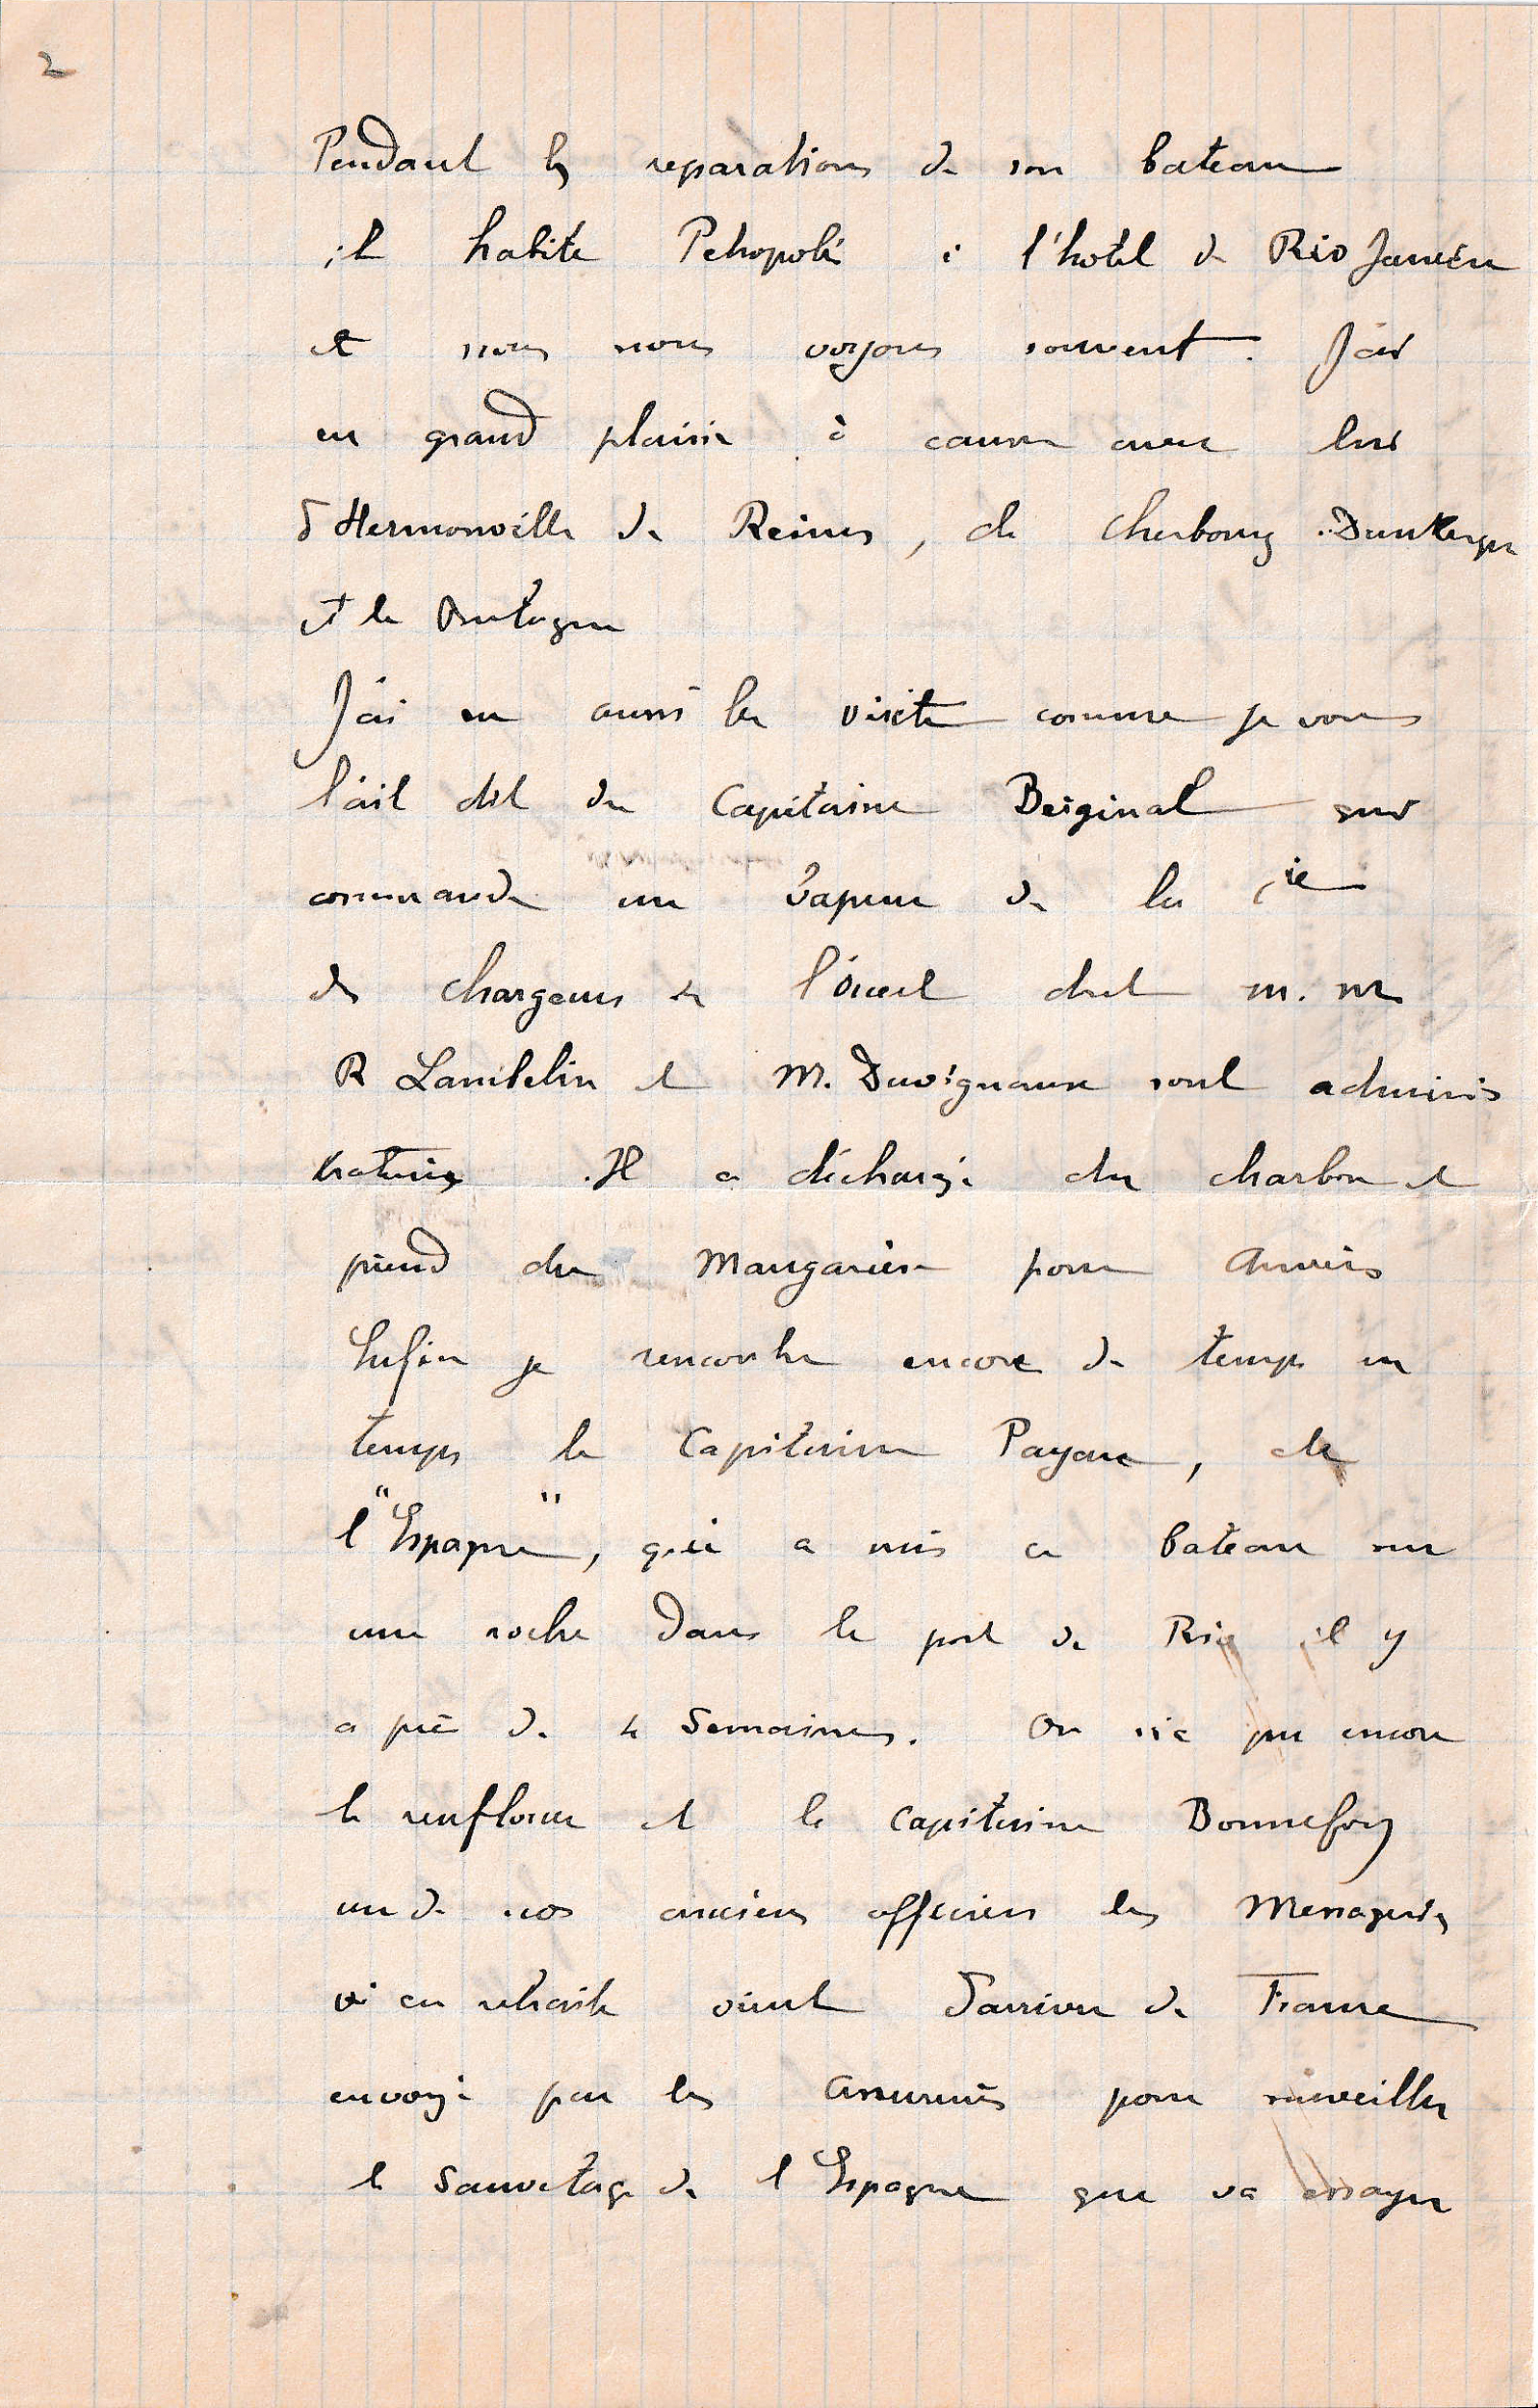 2
Pendant les reparations de son bateau
il habite Petropolis à l'hotel de Rio Janeiro
et nous nous voyons souvent. J'ai
eu grand plaisir à causer avec lui
d'Hermonville de Reims, de Cherbourg Dunkerque
et la Bretagne
J'ai eu aussi la visite comme je vous
l'ait dit du Capitaine Beiginal qui
commande un vapeur de la Cie
des chargeurs de l'Ouest dont m. m
R Lambelin et M. Duvignaux sont adminis
trateurs. Il a déchargé du charbon et
prend du Manganèse pour Anvers
Enfin je rencontre encore de temps en
temps le Capitaine Payan, de
l'"Espagne", qui a mis ce bateau sur
une roche dans le port de Rio il y
a près de 4 Semaines. On n'a pu encore
le renflouer et le capitaine Bonnefoy
un de nos anciens officiers des Messageries
en retraite vient d'arriver de France
envoyé par les Assureurs pour surveiller
le Sauvetage de l'Espagne que va essayer